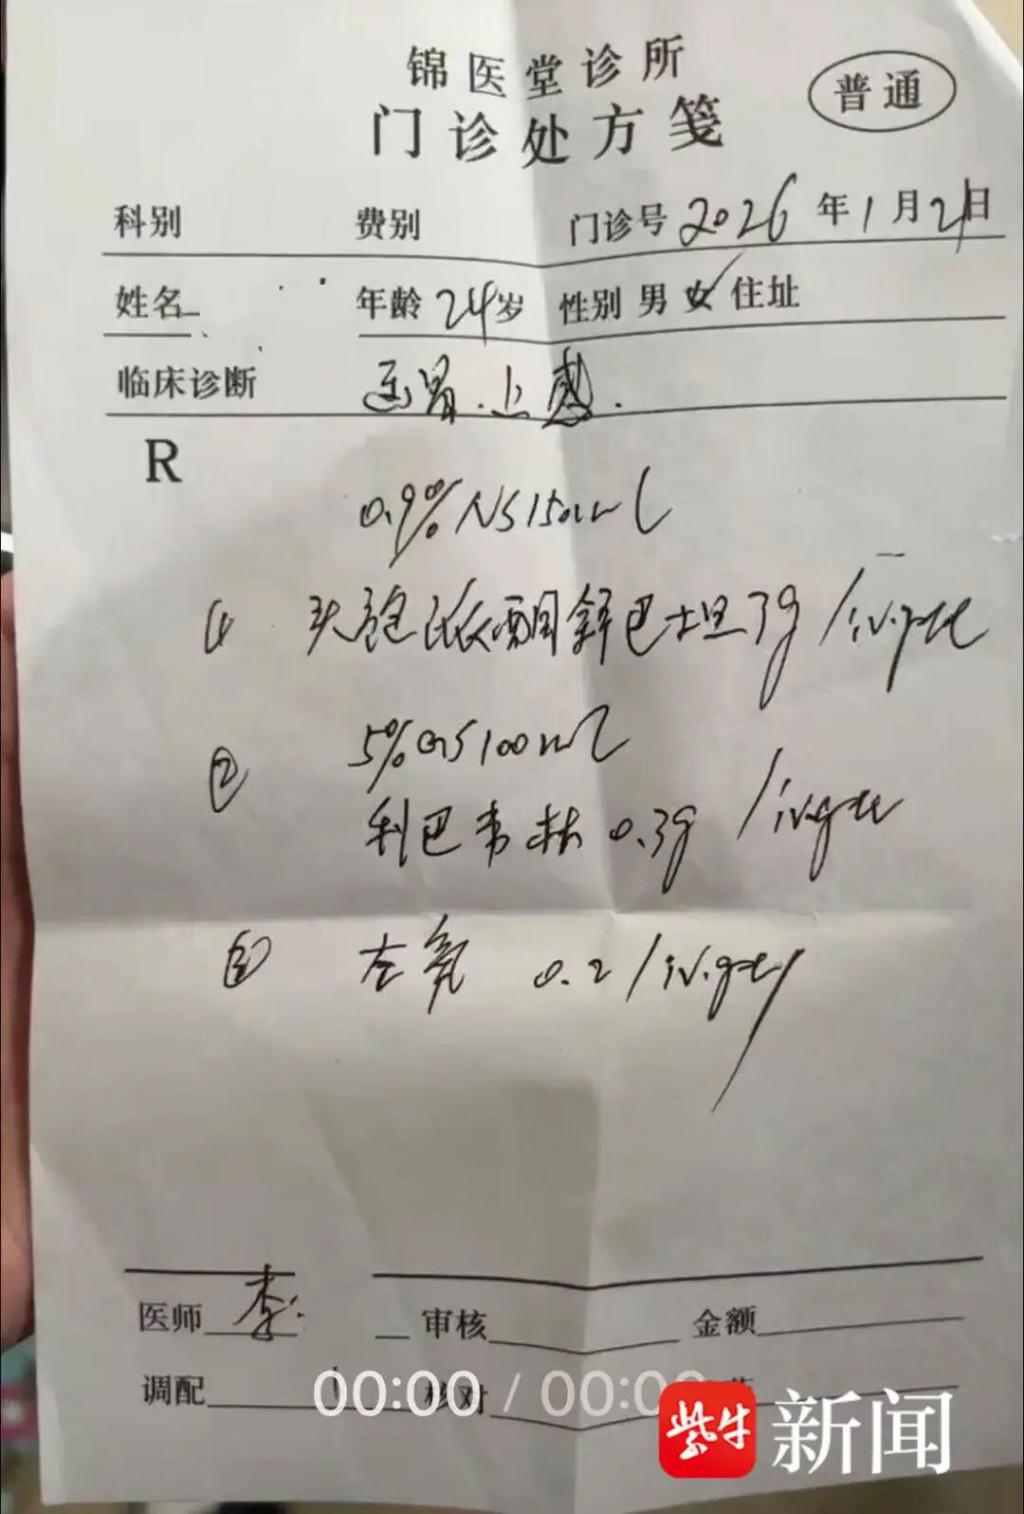 锦医堂诊所
门诊处方笺
普通
科别 费别 门诊号 2026年1月21日
姓名 年龄 24岁 性别 男 女 住址
临床诊断 上感.
R
0.9% NS 150ml
① 头孢哌酮舒巴坦 3g /iv.gtt
5% GS 100ml
② 利巴韦林 0.3g /iv.gtt
③ 左氧 0.2 /iv.gtt
医师 李 审核 金额
调配 核对
00:00 / 00:00
紫牛 新闻